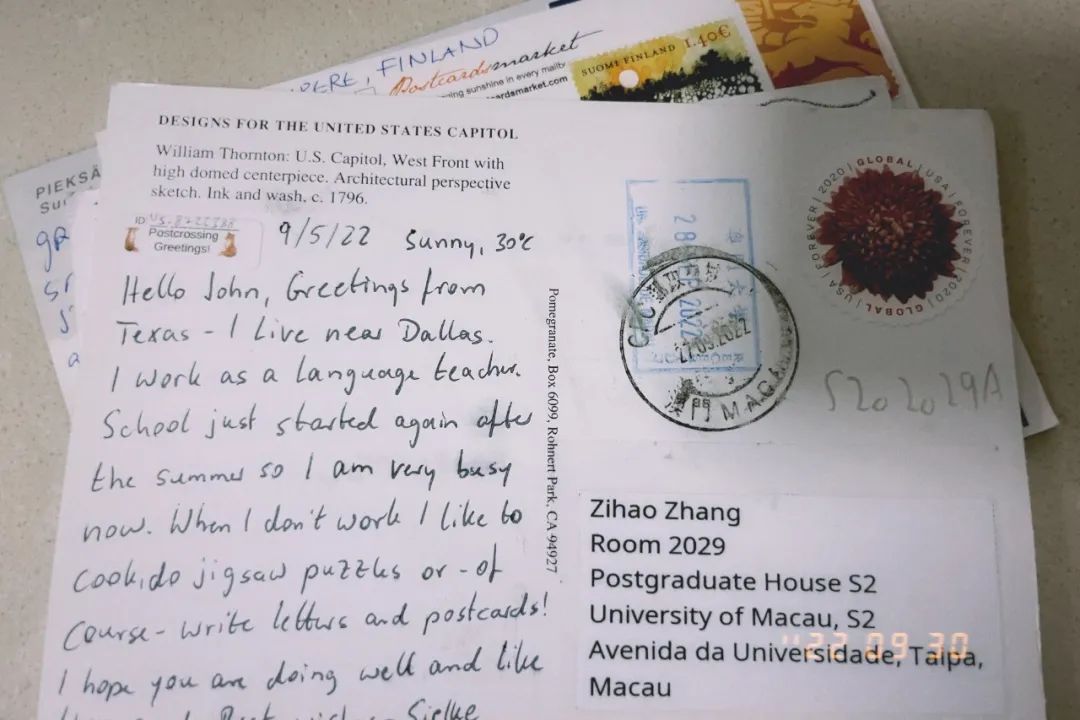 FINLAND
Postcardsmarket
sunshine in every
SUOMI FINLAND 1.40€
PIEKSÄ
DESIGNS FOR THE UNITED STATES CAPITOL
William Thornton: U.S. Capitol, West Front with
high domed centerpiece. Architectural perspective
sketch. Ink and wash, c. 1796.
ID
Postcrossing
Greetings!
9/5/22 Sunny, 30°C
Hello John, Greetings from
Texas - I live near Dallas.
I work as a language teacher.
School just started again after
the summer so I am very busy
now. When I don't work I like to
cook, do jigsaw puzzles or - of
course - write letters and postcards!
I hope you are doing well and like
Sielke
Pomegranate, Box 6099, Rohnert Park, CA 94927
GLOBAL | USA | FOREVER | 2020 | GLOBAL | USA | FOREVER | 2020
27.09.2022
澳門 MACA
S2 2029A
Zihao Zhang
Room 2029
Postgraduate House S2
University of Macau, S2
Avenida da Universidade, Taipa,
Macau
'22 09 30